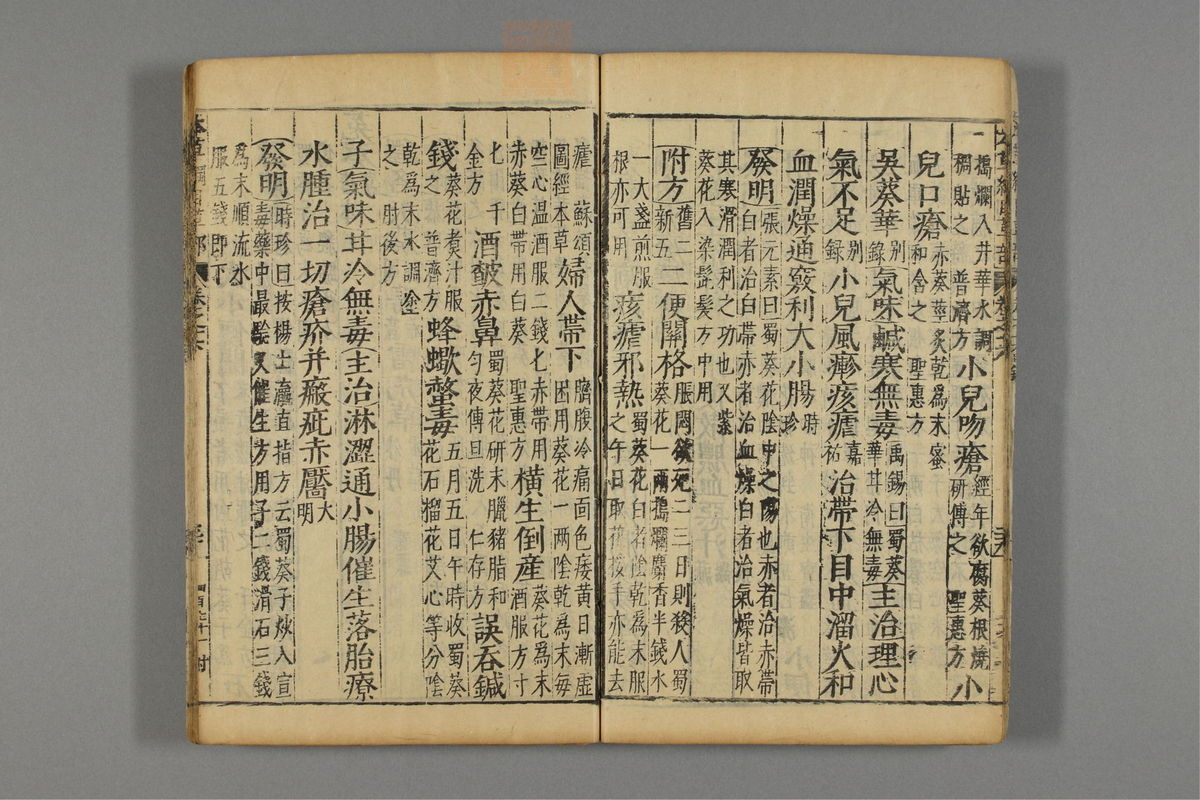 一擣爛入井華水調
稠貼之 普濟方 小兒吻瘡 經年欲腐葵根燒研傅之 聖惠方 小
兒口瘡 赤葵莖炙乾為末蜜和含之 聖惠方
吳葵華 别錄 氣味鹹寒無毒 禹錫曰蜀葵華甘冷無毒 主治理心
氣不足 别錄 小兒風𤺋痎瘧 嘉祐 治帶下目中溜火和
血潤燥通竅利大小腸 時珍
發明 張元素曰蜀葵花陰中之陽也赤者治赤帶
白者治白帶赤者治血燥白者治氣燥皆取
其寒滑潤利之功也又紫
葵花入染髭髮方中用
附方 舊二新五 二便關格 脹悶欲死二三日則殺人蜀葵花一兩擣爛麝香半錢水
一大盞煎服
根亦可用 痎瘧邪熱 蜀葵花白者陰乾為末服之午日取花挼手亦能去
瘧 蘇頌圖經本草 婦人帶下 臍腹冷痛面色痿黄日漸虛困用葵花一兩陰乾為末每
空心温酒服二錢匕赤帶用
赤葵白帶用白葵 聖惠方 横生倒産 葵花為末酒服方寸
匕 千金方 酒皶赤鼻 蜀葵花研末臘豬脂和勻夜傅旦洗 仁存方 誤吞鍼
錢 葵花煮汁服之 普濟方 蜂蠍螫毒 五月五日午時收蜀葵花石榴花艾心等分陰
乾為末水調塗
之 肘後方
子 氣味甘冷無毒 主治淋澀通小腸催生落胎療
水腫治一切瘡疥并瘢疵赤靨 大明
發明 時珍曰按楊士瀛直指方云蜀葵子炒入宣
毒藥中最驗又催生方用子二錢滑石三錢
為末順流水
服五錢即下